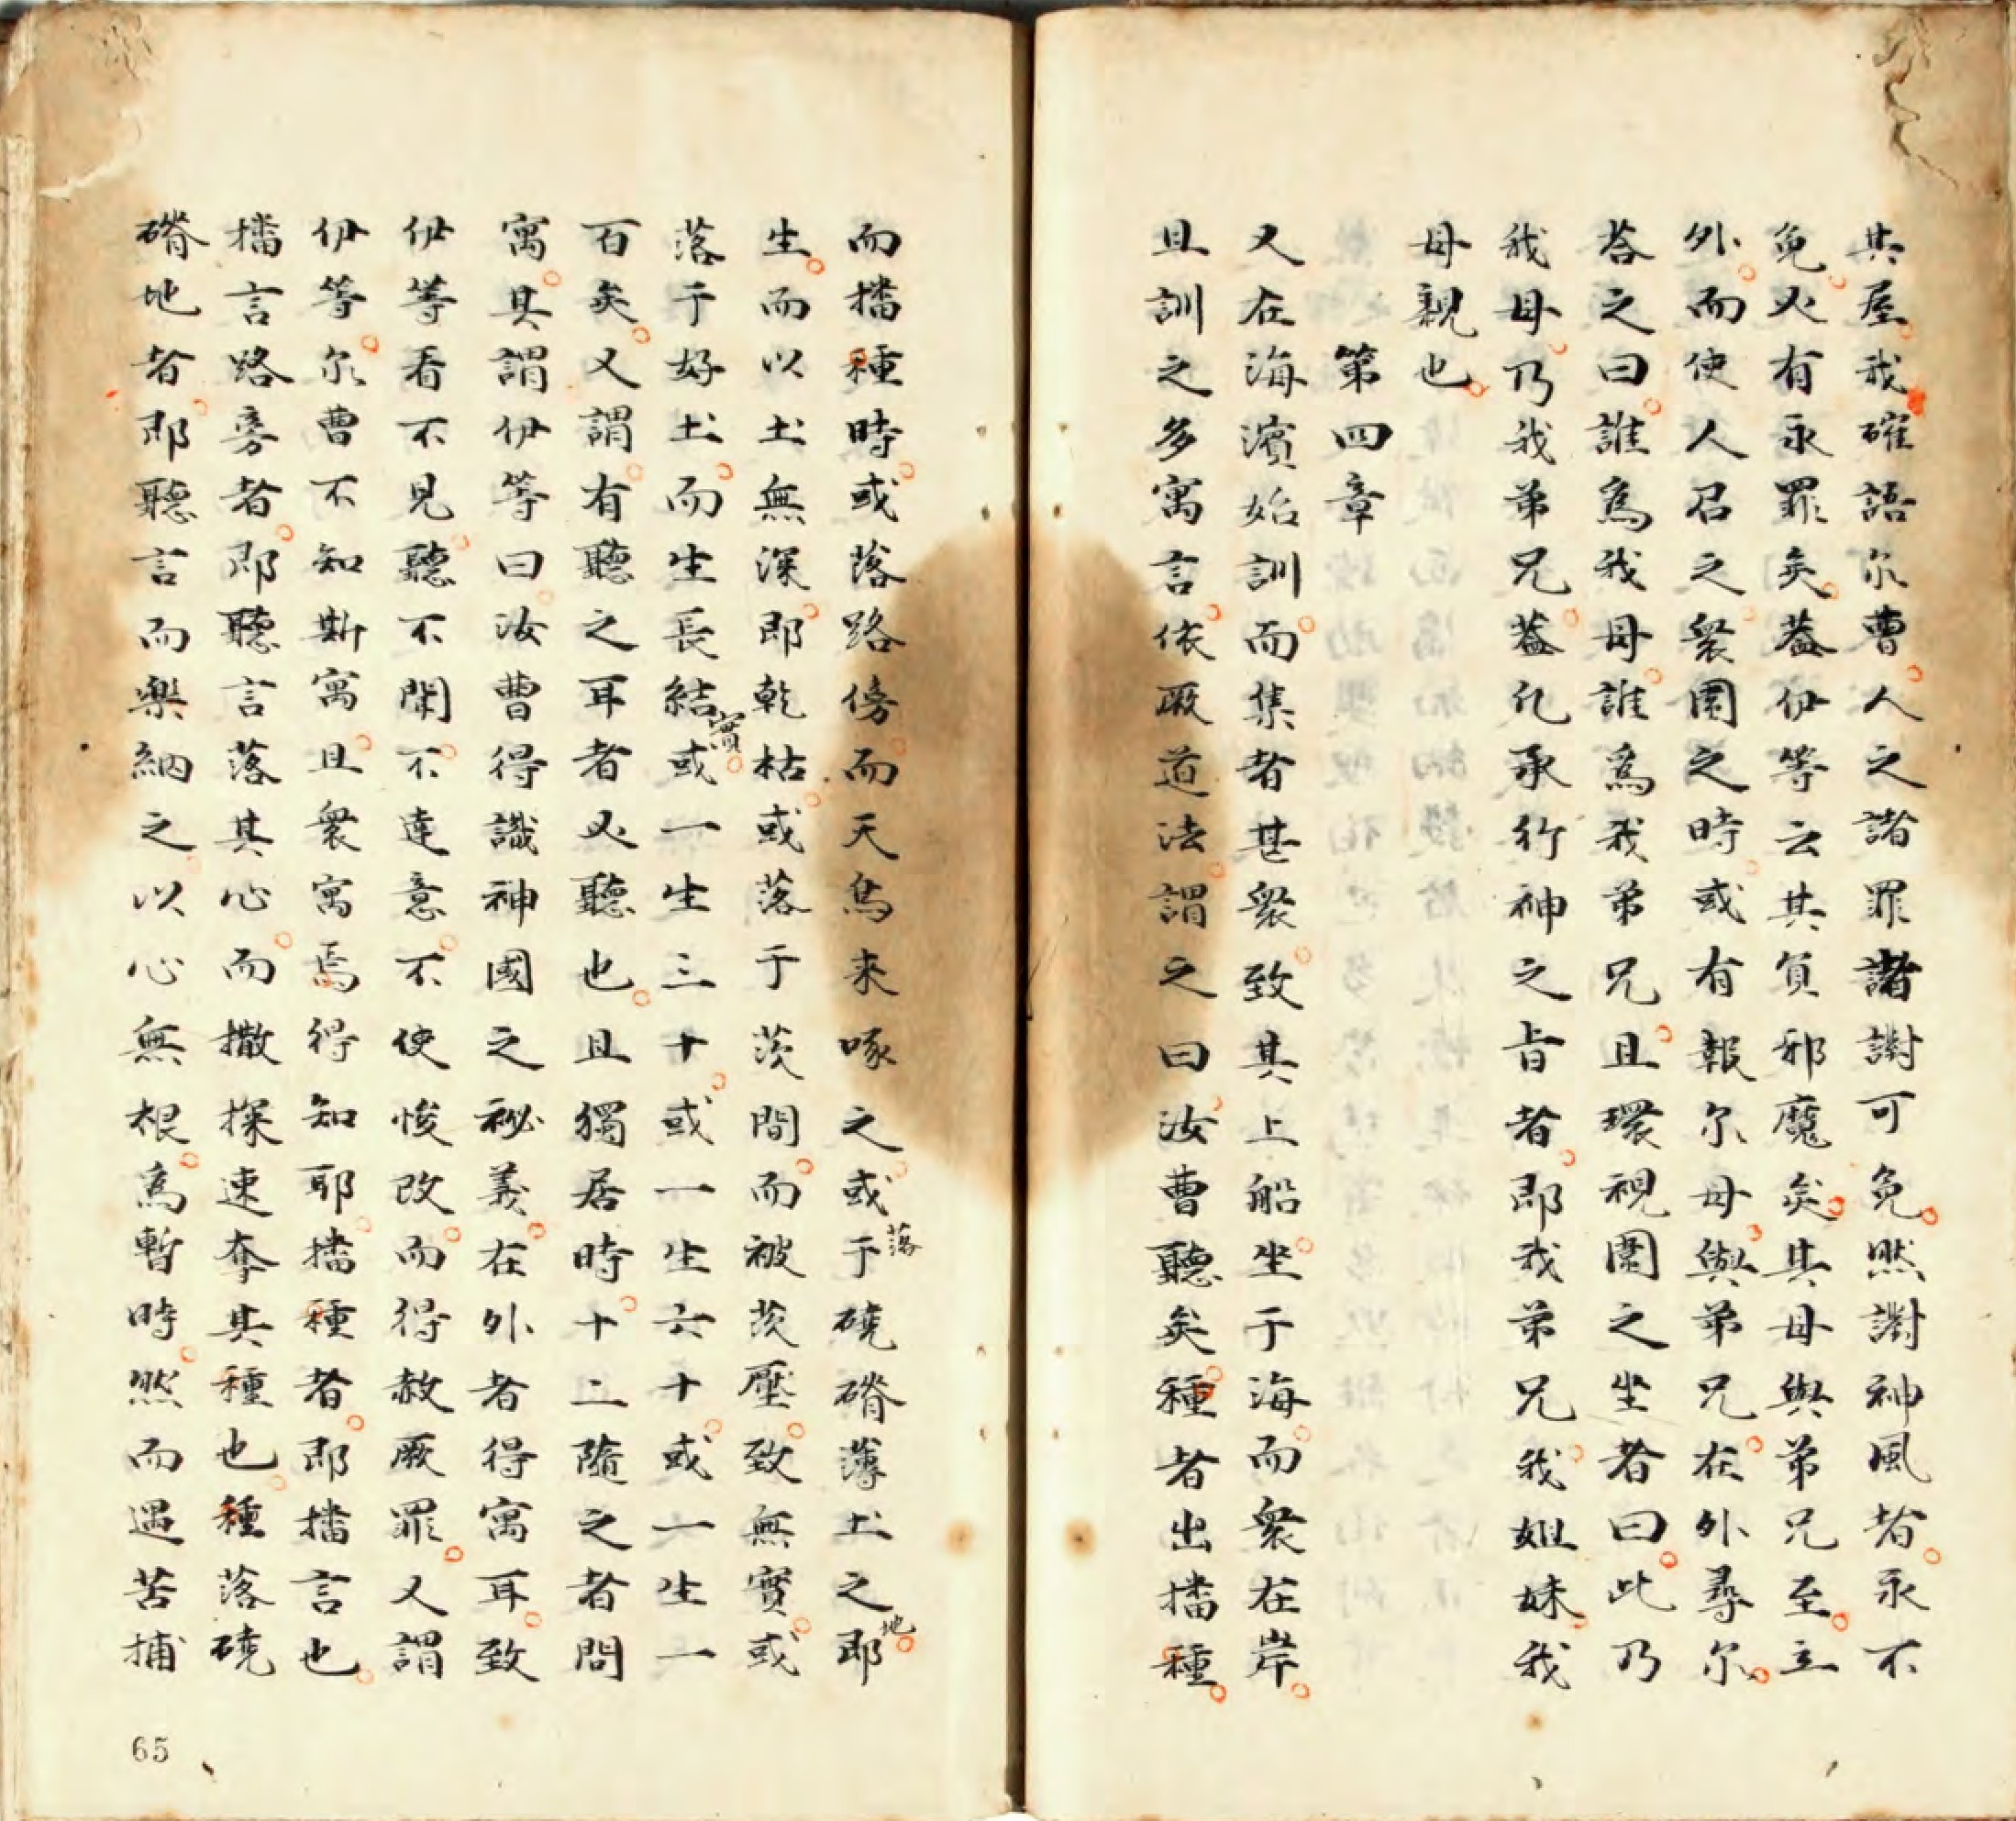 其屋我確語尔曹人之諸罪諸謝可免然謝神風者永不
免乂有永罪矣葢伊等云其負邪魔矣其母與弟兄至立
外而使人召之衆圍之時或有報尔母與弟兄在外尋尔
荅之曰誰爲我母誰爲我弟兄且環視圍之坐者曰此乃
我母乃我弟兄葢凢承行神之旨者即我弟兄我姐妹我
母親也
第四章
又在海濱始訓而集者甚衆致其上船坐于海而衆在岸
且訓之多寓言依厥道法謂之曰汝曹聽矣種者出播種
而播種時或落路傍而天鳥来啄之或落于磽磆薄土之地即
生而以土無深即乾枯或落于茨間而被茨壓致無實或
落于好土而生長結實或一生三十或一生六十或一生一
百矣又謂有聽之耳者乂聽也且獨居時十二隨之者問
寓其謂伊等曰汝曹得識神國之秘義在外者得寓耳致
伊等看不見聽不聞不達意不使悛改而得赦厥罪又謂
伊等尔曹不知斯寓且衆寓焉得知耶播種者即播言也
播言路旁者即聽言落其心而撒探速奪其種也種落磽
磆地者即聽言而樂納之以心無根爲暫時然而遇苦捕
65